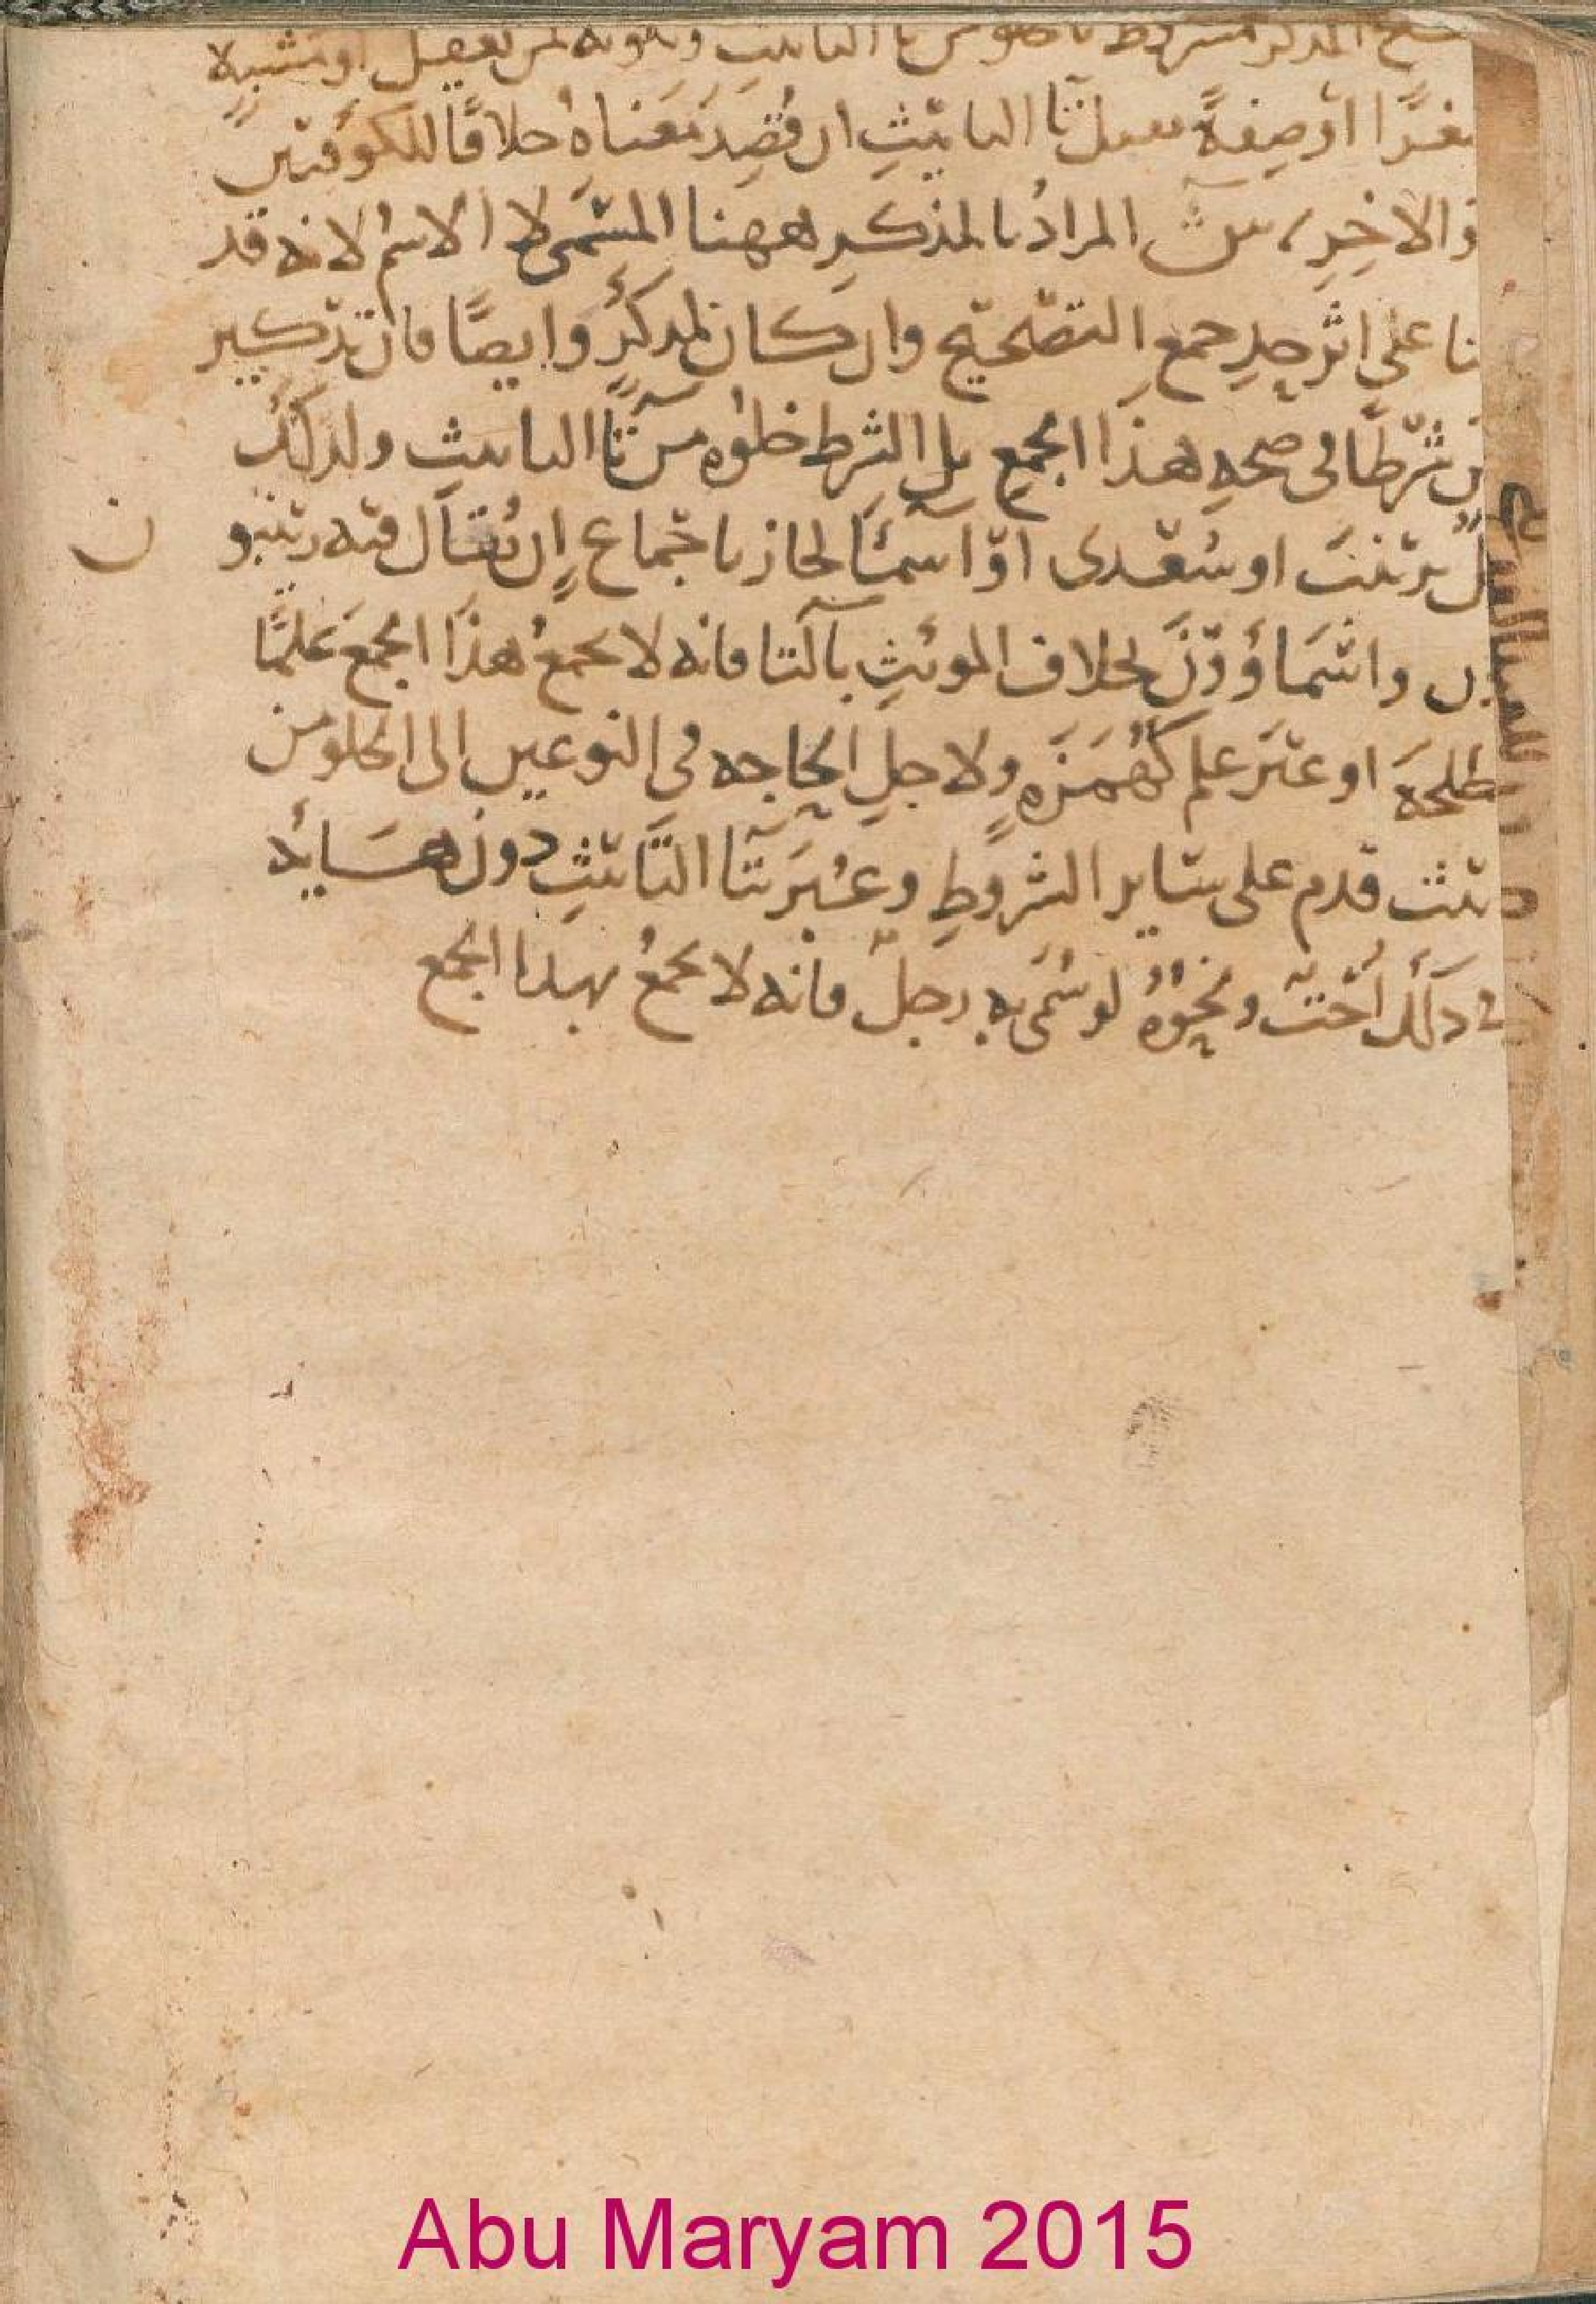 المذكر مشروط بالخلو من تا التانيث وكونه لمن يعقل او مشبه
او صفة تقبل تا التانيث ان قُصِدَ مَعناه خلافًا للكوفيين
الاخر، ش المرادُ بالمذكر ههنا المسَمى لا الاسم لانه قد
على اثر جمع التصحيح وان كان لمذكر وايضًا فان تذكير
شرطًا فى صحه هذا الجمع بل الشرط خلوه من تا التانيث ولذلك
زينب او سُعدى او اسمَا لجاز باجماع ان يُقال فيه زينبو ن
ن واسمَاؤوْنَ بخلاف المونث بالتا فانه لا يجمعُ هذا الجمعَ علمًا
طلحة او غير علم كهُمَزَه ولاجل الحاجه فى النوعين الى الخلو من
قدم على ساير الشروط وعُبرَ بتا التانيث دون
ذلك اُخت ونحوُهُ لو سُمّى به رجل فانه لا يجمعُ بهذا الجمع
Abu Maryam 2015